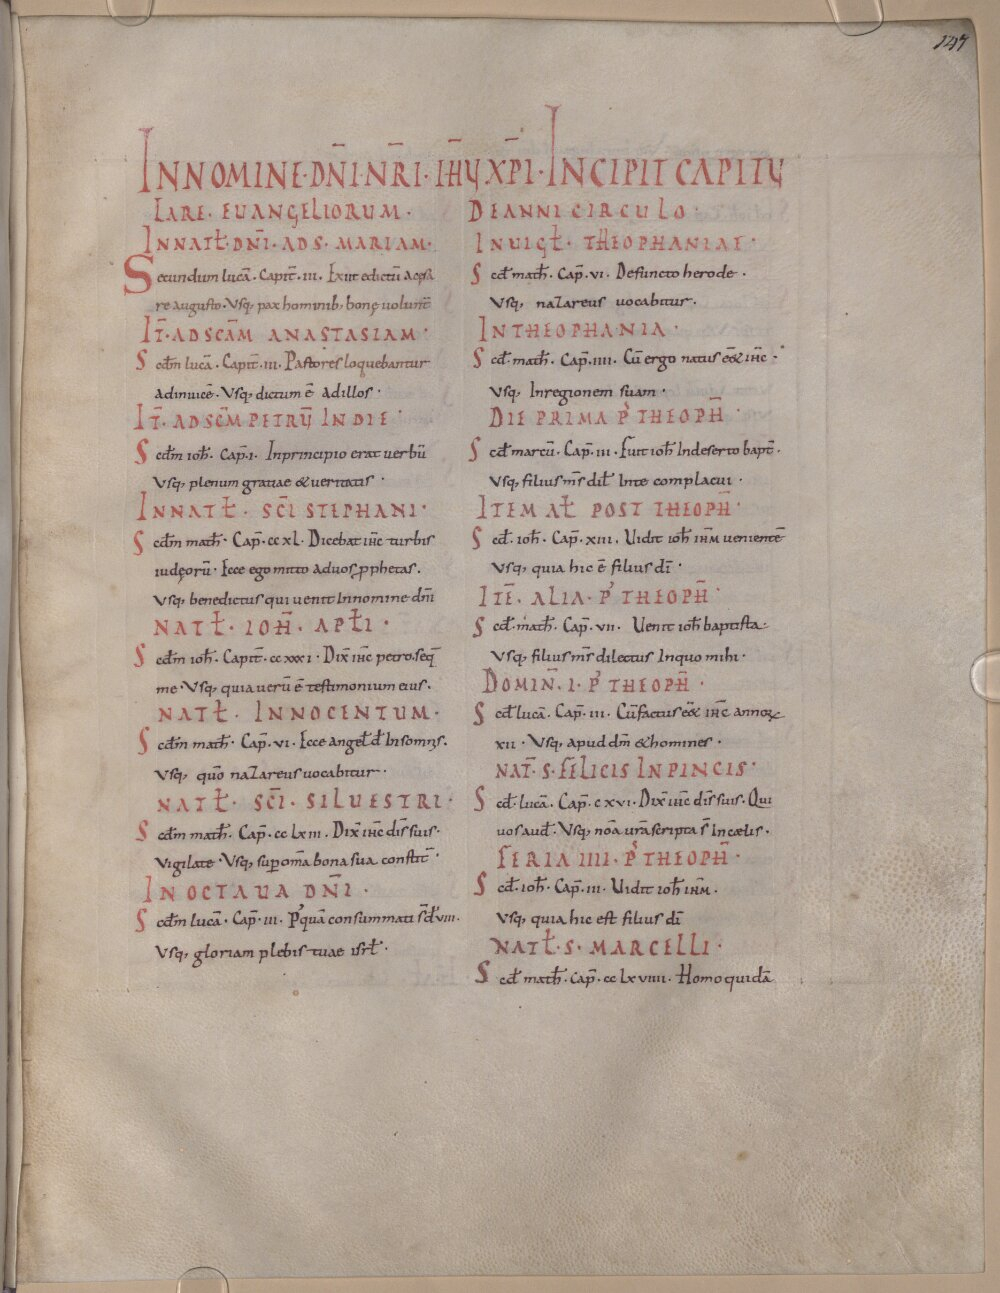 147
INNOMINE·DN̄I·N̄RI·IH̄Ū XP̄I·INCIPIT CAPITU
LARE· EUANGELIORUM·
INNATL̄·DN̄I·AD S· MARIAM·
Secundum lucā· Capit̄·III· Exiit edictū acęsa
re augusto·Vsq, pax hominib, bonę uolunt̄
IT̄·AD SCĀM ANASTASIAM·
Scd̄m lucā· Capit̄·III· Pastores loquebantur
adinuicē·Vsq, dictum ē adillos·
IT̄·AD SC̄M PETRŪ IN DIE·
Scd̄m ioh̄· Cap̄·I· Inprincipio erat uerbū
Vsq, plenum gratiae &ueritatis·
INNATL̄· SC̄I STEPHANI·
Scd̄m math̄· Cap̄·CCXL· Dicebat ih̄c turbis
iudęorū· Ecce ego mitto aduos ꝓphetas·
Vsq, benedictus qui uenit Innomine dn̄i
NATL̄· IOH̄· APL̄I·
Scd̄m ioh̄· Capit̄·CCXXXI· Dix̄ ih̄c petro·seq̄
me·Vsq, quia uerū ē testimonium eius·
NATL̄· INNOCENTUM·
Scd̄m math̄· Cap̄·VI· Ecce angel̄ d̄ Insomnis·
Vsq, quō naZareus uocabitur·
NATL̄· SC̄I· SILUESTRI·
Scd̄m math̄· Cap̄·CCLXIII· Dix̄ ih̄c dis̄ suis·
Vigilate·Vsq, suꝑ om̄a bona sua constit̄·
IN OCTAUA DN̄I·
Scd̄m lucā· Cap̄·III· P'quā consummati s̄ d̄ VIII·
Vsq, gloriam plebis tuae isrl̄·
DE ANNI CIRCULO·
INUIGL̄· THEOPHANIAE·
Scd̄ math̄· Cap̄·VI· Defuncto herode·
Vsq, naZareus uocabitur·
IN THEOPHANIA·
Scd̄·math̄· Cap̄·IIII· Cū ergo natus eēt ih̄c·
Vsq, Inregionem suam·
DIE PRIMA P' THEOPH̄·
Scd̄ marcū· Cap̄·III· Fuit ioh̄ Indeserto bapt̄·
Vsq, filius m̄s dil̄ Inte complacui·
ITEM AL̄ POST THEOPH̄·
Scd̄· ioh̄· Cap̄·XIII· Uidit ioh̄ ih̄m uenientē
Vsq, quia hic ē filius dī·
ITĒ· ALIA· P' THEOPH̄·
Scd̄·math̄· Cap̄·VII· Uenit ioh̄ baptista·
Vsq, filius m̄s dilectus Inquo mihi·
DOMIN̄·I· P' THEOPH̄·
Scd̄ lucā· Cap̄·III· Cū factus eēt ih̄c annoꝝ
XII· Vsq, apud dm̄ &homines·
NAT̄·S·FELICIS IN PINCIS·
Scd̄· lucā· Cap̄·CXVI· Dix̄ ih̄c dis̄ suis· Qui
uos aud̄· Vsq, nōa ur̄a scripta s̄ Incaelis·
FERIA IIII· P' THEOPH̄·
Scd̄·ioh̄· Cap̄·III· Uidit ioh̄ ih̄m·
Vsq, quia hic est filius dī
NATL̄·S· MARCELLI·
Scd̄ math̄· Cap̄·CCLXVIIII· Homo quidā